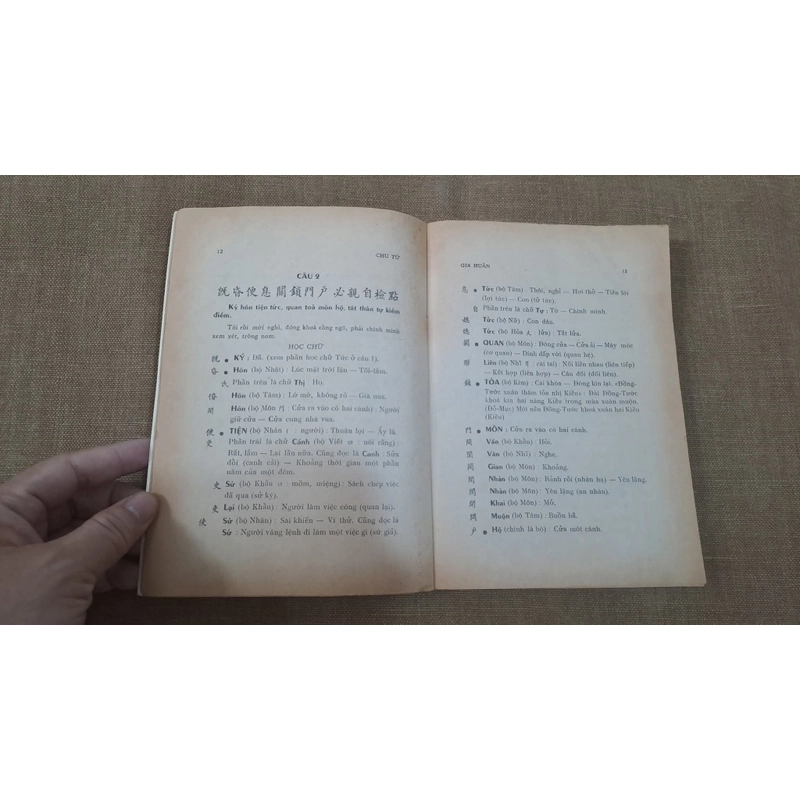 12
CHU TỬ
CÂU 2
旣昏便息關鎖門戶必親自檢點
Ký hôn tiện tức, quan toả môn hộ, tất thân tự kiểm
điểm.
Tối rồi mới nghỉ, đóng khoá cổng ngõ, phải chính mình
xem xét, trông nom.
HỌC CHỮ
旣 • KÝ : Đã. (xem phần học chữ Tức ở câu 1).
昏 • Hôn (bộ Nhật) : Lúc mặt trời lặn — Tối-tăm.
氏 Phần trên là chữ Thị Họ.
惛 Hôn (bộ Tâm) : Lờ mờ, không rõ — Già nua.
閽 Hôn (bộ Môn 門) : Cửa ra vào có hai cánh) : Người
giữ cửa — Cửa cung nhà vua.
便 • TIỆN (bộ Nhân 亻 : người) : Thuận lợi — Ấy là.
更 Phần trái là chữ Cánh (bộ Viết 曰 : nói rằng) :
Rất, lắm — Lại lần nữa. Cũng đọc là Canh : Sửa
đổi (canh cải) — Khoảng thời gian một phần
năm của một đêm.
史 Sử (bộ Khẩu 口 : mồm, miệng) : Sách chép việc
đã qua (sử ký).
吏 Lại (bộ Khẩu) : Người làm việc công (quan lại).
使 Sử (bộ Nhân) : Sai khiến — Ví thử. Cũng đọc là
Sứ : Người vâng lệnh đi làm một việc gì (sứ giả).
GIA HUẤN
13
息 • Tức (bộ Tâm) : Thôi, nghỉ — Hơi thở — Tiền lời
(lợi tức) — Con (tử tức).
自 Phần trên là chữ Tự : Từ — Chính mình.
媳 Tức (bộ Nữ) : Con dâu.
熄 Tức (bộ Hỏa 火 : lửa) : Tắt lửa.
關 • QUAN (bộ Môn) : Đóng cửa — Cửa ải — Máy móc
(cơ quan) — Dính dấp với (quan hệ).
聯 Liên (bộ Nhĩ 耳 : cái tai) : Nối liền nhau (liên tiếp)
— Kết hợp (liên hợp) — Câu đối (đối liên).
鎖 • TỎA (bộ Kim) : Cái khóa — Đóng kín lại «Đồng-
Tước xuân thâm tỏa nhị Kiều» : Đài Đồng-Tước
khoá kín hai nàng Kiều trong mùa xuân muộn.
(Đỗ-Mục) Một nền Đồng-Tước khoá xuân hai Kiều
(Kiều)
門 • MÔN : Cửa ra vào có hai cánh.
問 Vấn (bộ Khẩu) : Hỏi.
聞 Văn (bộ Nhĩ) : Nghe.
間 Gian (bộ Môn) : Khoảng.
閒 Nhàn (bộ Môn) : Rảnh rỗi (nhàn hạ) — Yên lặng.
閑 Nhàn (bộ Môn) : Yên lặng (an nhàn).
開 Khai (bộ Môn) : Mở.
悶 Muộn (bộ Tâm) : Buồn bã.
戶 • Hộ (chính là bộ) : Cửa một cánh.